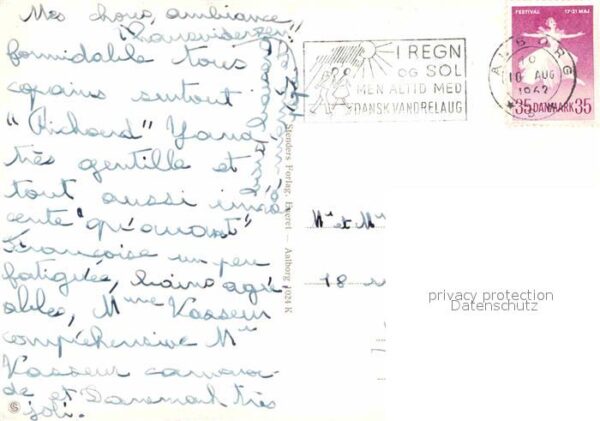 Mes chous, ambiance
formidable tous
copains surtout
"Richard" Yana
très gentille et
tout aussi inno
cente "qu'avant"
Françoise un peu
fatiguée, bains agré
ables, Mme Vasseur
compréhensive Mr
Vasseur camara-
de et Danemark très
joli.
Stenders Forlag, Eneret — Aalborg 1024 K
I REGN
OG SOL
MEN ALTID MED
DANSK VANDRELAUG
AALBORG
10 AUG
1962
FESTIVAL 17-31 MAJ
35 DANMARK 35
Mr et Mme
18
privacy protection
Datenschutz